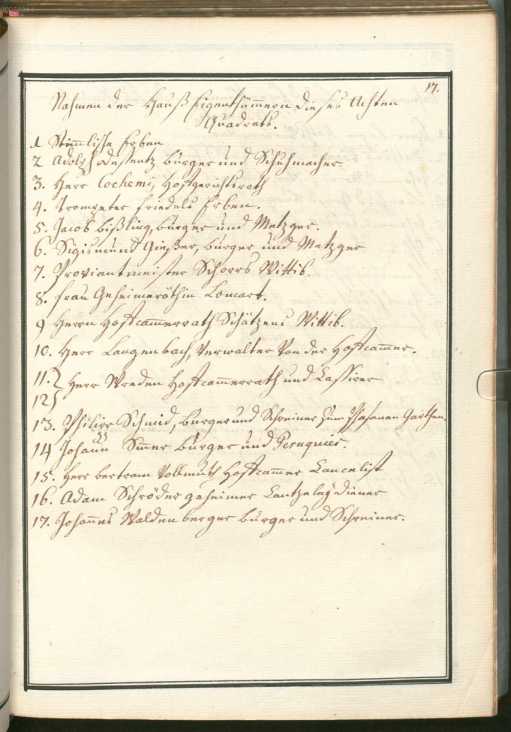 17.
Nahmen der Hauß Eigenthümmern dieses Achten
Quadrats.
1 Stümlische Erben
2 Adolf Dessentz burger und Schuhmacher
3. Herr Cochemi, Hofgerichtsrath
4. Trompeter Friedels Erben.
5. Jacob bißling, burger und Metzger.
6. Sigismund Gießer, burger und Metzger
7. Proviantmeister Schorrs Wittib.
8. Frau Geheimeräthin Loncart.
9 Herrn Hofcammerrath Schätzens Wittib.
10. Herr Langenbach, Verwalter Von der Hofcammer.
11. } Herr Wreden Hofcammerrath und Cassirer
12 }
13. Philipp Schmid, burger und Schreiner Zum Phasanen Garthen.
14 Johann burger und Peruquier.
15. Herr bertram Vollmuth Hofcammer Cancelist
16. Adam Schröder geheimer Cantzeleydiener
17. Johannes Waldenberger burger und Schreiner.